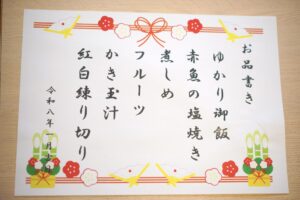 お品書き
ゆかり御飯
赤魚の塩焼き
煮しめ
フルーツ
かき玉汁
紅白練り切り
令和八年一月